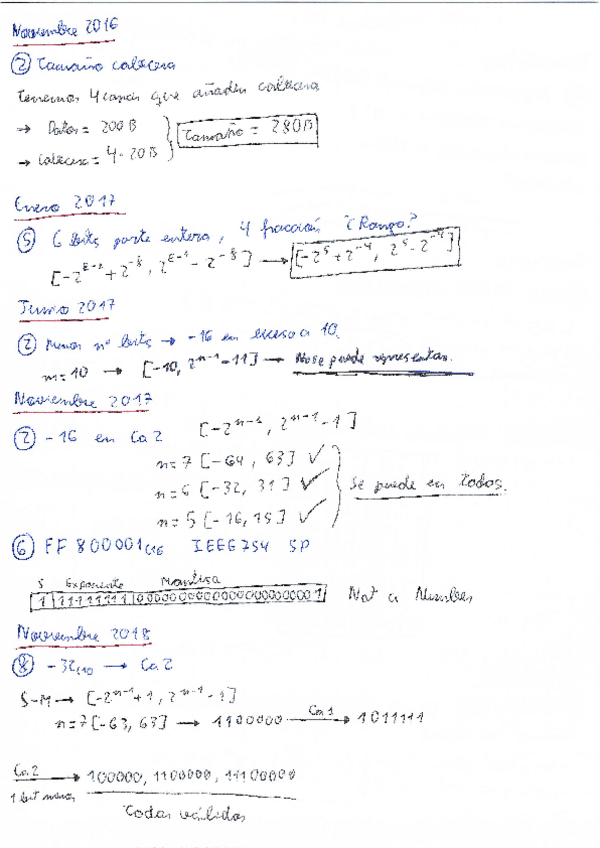 Noviembre 2016
② Tamaño cabecera
Tenemos 4 capas que añaden cabecera
→ Datos = 200 B
→ Cabecera = 4·20 B
Tamaño = 280B
Enero 2017
⑤ 6 bits parte entera, 4 fracción ¿Rango?
→ [-2⁵+2⁻⁴, 2⁵-2⁻⁴]
Junio 2017
② Menor nº bits → -16 en exceso a 10.
m=10 → [-10, 2ⁿ⁻¹-11] → No se puede representar.
Noviembre 2017
② -16 en Ca2 [-2ⁿ⁻¹, 2ⁿ⁻¹-1]
n=7 [-64, 63] ✓
n=6 [-32, 31] ✓
n=5 [-16, 15] ✓
Se puede en todos.
⑥ FF800001₍₁₆ IEEE754 SP
S Exponente Mantisa
1 11111111 00000000000000000000001 Not a Number
Noviembre 2018
⑧ -32₍₁₀ → Ca2
S-M → [-2ⁿ⁻¹+1, 2ⁿ⁻¹-1]
n=7 [-63, 63] → 1100000 Ca1 → 1011111
Ca2 → 100000, 1100000, 11100000
1 bit menos
Todas válidas